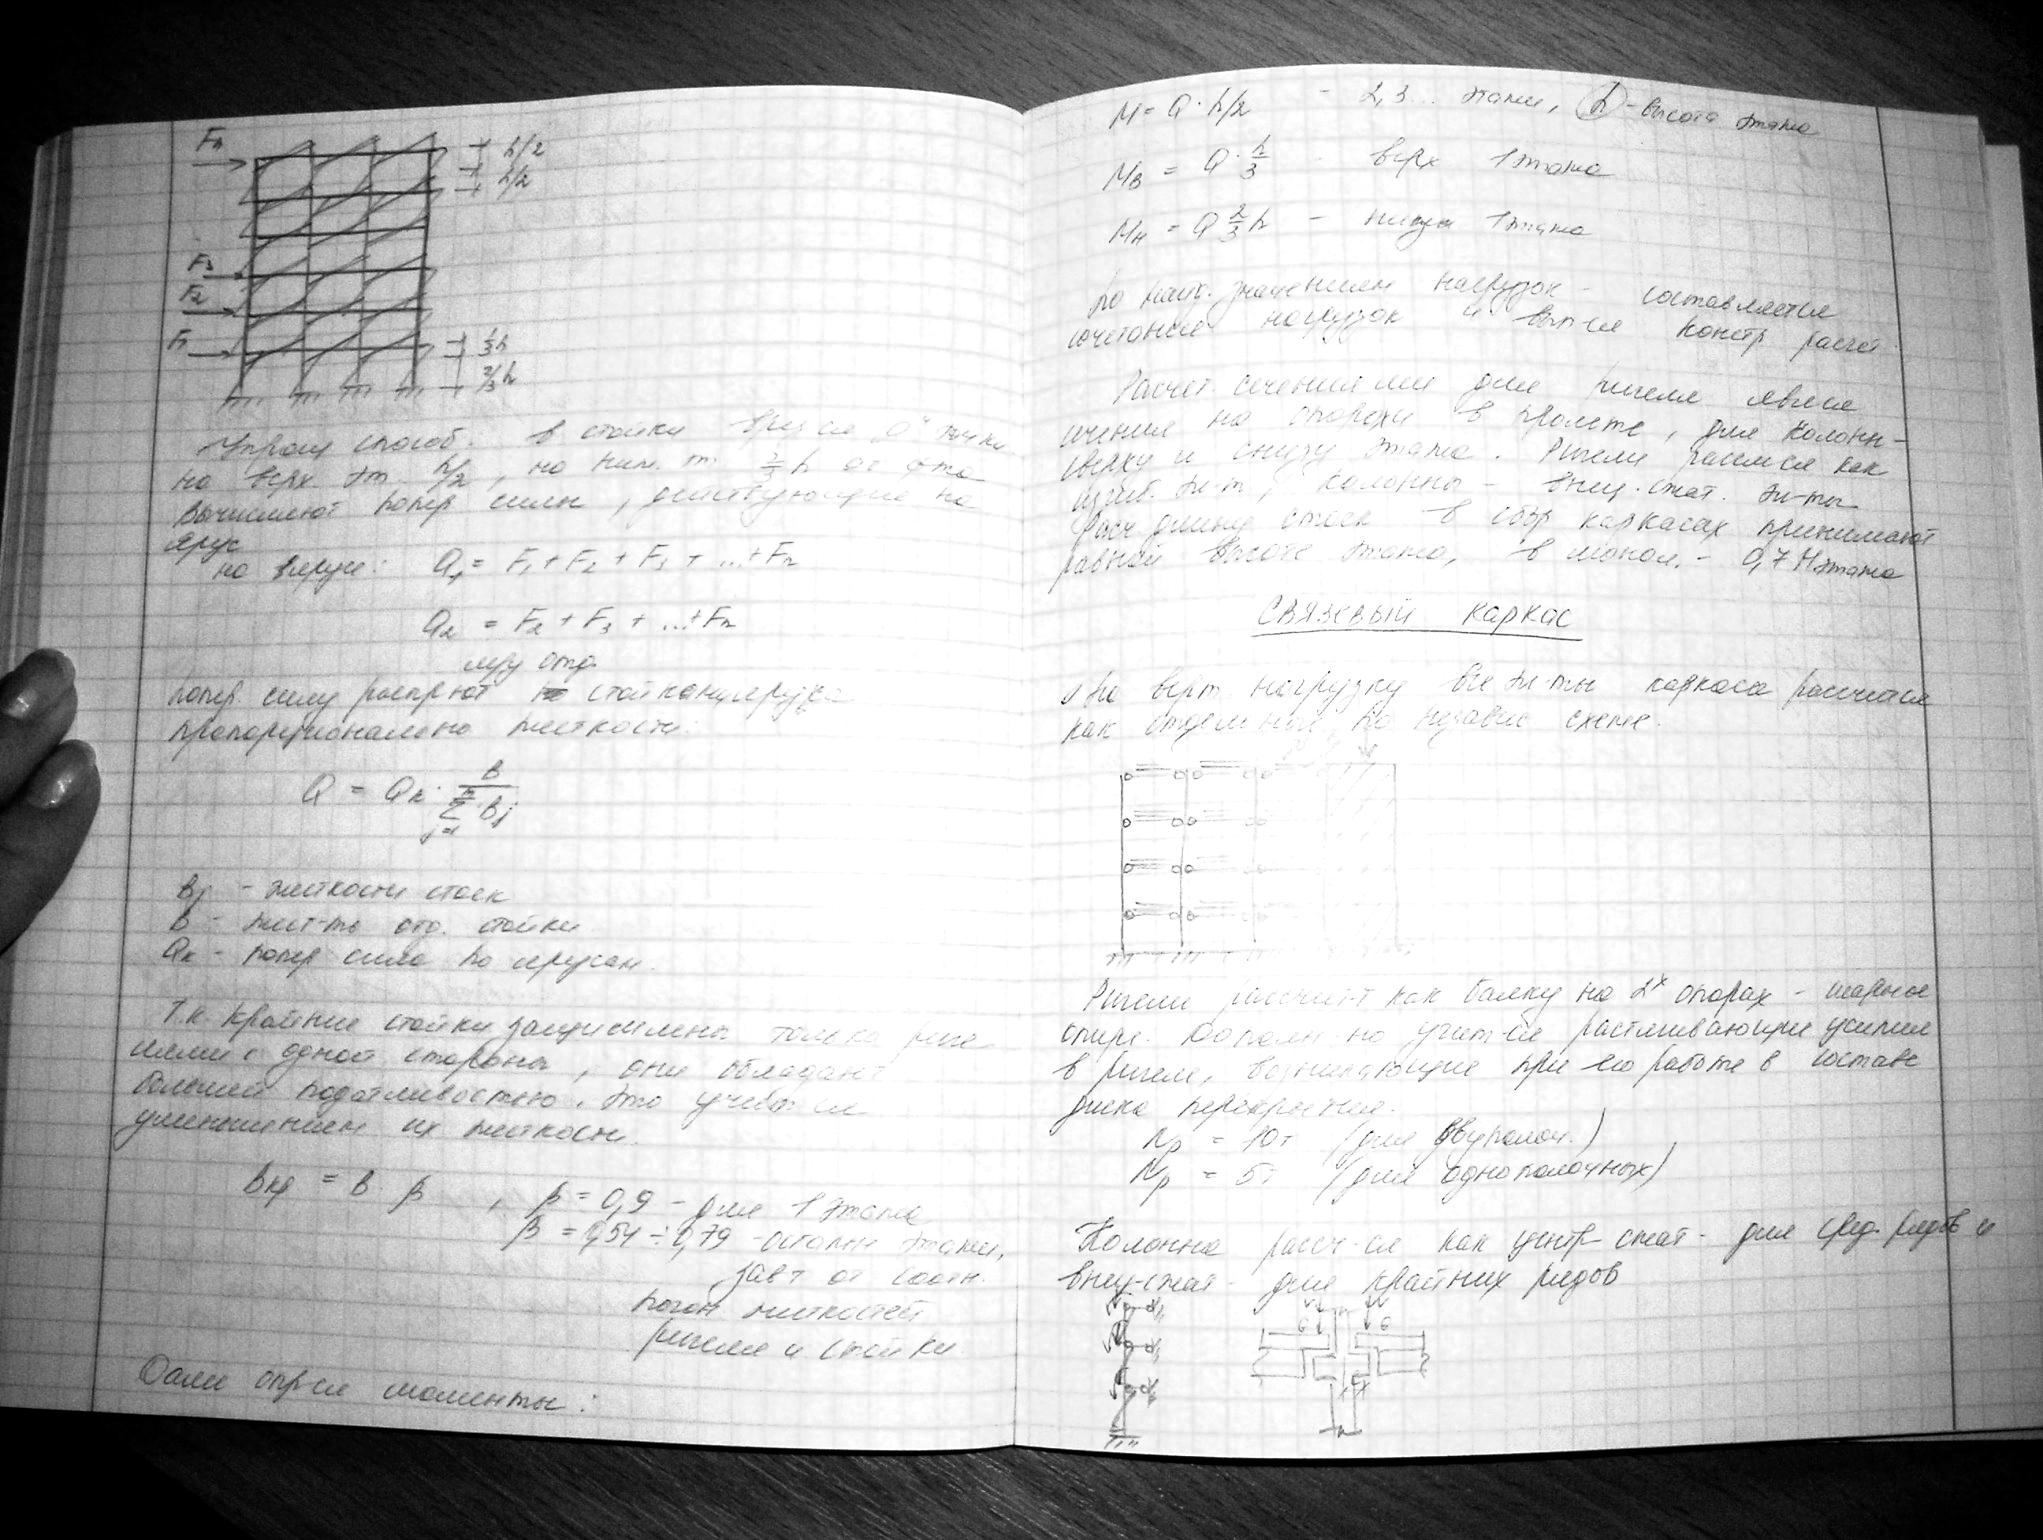 Fn
h/2
h/2
F3
F2
F1
1/3 h
2/3 h
Упрощ способ. В стойки врез ся "0" точки
на верх эт. h/2, на ниж. эт. 2/3 h от
вычисляют попер силы, действующие на
ярус
на 1 ярусе: Q1 = F1 + F2 + F3 + ... + Fn
Q2 = F2 + F3 + ... + Fn
м/у отд.
попер. силу распр-ют стойками яруса
пропорционально жесткости:
Q = Qk · B / Σ Bj
n
j=1
Bj - жесткости стоек
B - жест-ть отд. стойки
Qk - попер сила по ярусам.
Т.к. крайние стойки защемлены только риге
лями с одной стороны, они обладают
большей податливостью. Это учит-ся
уменьшением их жесткости.
Bкр = B · β , β = 0,9 - для 1 этажа
β = 0,54 ÷ 0,79 - остальн этажи,
зав т от соотн.
погон. жесткостей
ригеля и стойки.
Далее опр-ся моменты:
M = Q · h/2 - 2,3... этажи, h - высота этажа
Mв = Q · h/3 - верх 1 этажа
Mн = Q 2/3 h - низ 1 этажа
По значениям нагрузок - составляется
сочетание нагрузок и вып-ся констр расчет.
Расчет. сечениями для ригеля явл-ся
сечения на опорах и в пролете, для колонн -
сверху и снизу этажа. Ригели рассч-ся как
изгиб. эл-т, колонны - внец. сжат. эл-ты
Расч длину стоек в сбор каркасах принимают
равной высоте этажа, в монол. - 0,7 Hэтажа
СВЯЗЕВЫЙ КАРКАС
На верт. нагрузку все эл-ты каркаса рассч-тся
как отдельные, по независ схеме.
Ригели рассчит-т как балку на 2х опорах - шарные
опир. Дополн-но учит-ся растягивающие усилия
в ригеле, возникающие при его работе в составе
диска перекрытия.
Np = 10т (для двуполоч.)
Np = 5т (для однополочных)
Колонна рассч-ся как центр сжат - для сред. рядов и
внец-сжат - для крайних рядов